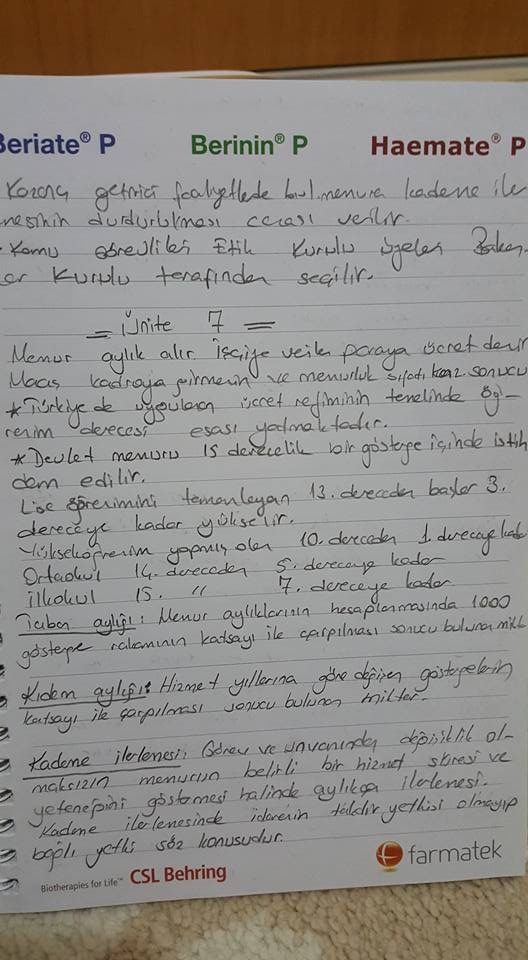 Beriate® P Berinin® P Haemate® P
Kazanç getirici faaliyetlede bul. memura kademe ile
mesinin durdurulması cezası verilir.
Kamu Görevlileri Etik Kurulu üyeleri Bakan
lar Kurulu terafından seçilir.
= Ünite 7 =
Memur aylık alır. İşçiye verilen paraya ücret denir
Maaş kadroya girmenin ve memurluk sıfatı kaz. sonucu
* Türkiye de uygulanan ücret rejiminin temelinde öğ-
renim derecesi esası yatmaktadır.
* Devlet memuru 15 derecelik bir gösterge içinde istih
dam edilir.
Lise öğrenimini tamamlayan 13. dereceden başlar 3.
dereceye kadar yükselir.
Yükseköğrenim yapmış olan 10. dereceden 1. dereceye kada
Ortaokul 14. dereceden 5. dereceye kadar
İlkokul 15. " 7. dereceye kadar
Taban aylığı: Memur aylıklarının hesaplanmasında 1000
gösterge rakamının katsayı ile çarpılması sonucu buluna mikt
Kıdem aylığı: Hizmet yıllarına göre değişen göstergelerin
katsayı ile çarpılması sonucu bulunan miktar.
Kademe ilerlemesi: Görev ve unvanından değişiklik ol-
maksızın memurun belirli bir hizmet süresi ve
yeteneğini göstermesi halinde aylıkça ilerlemesi.
Kademe ilerlemesinde idarenin takdir yetkisi olmayıp
bağlı yetki söz konusudur.
farmatek
Biotherapies for Life™ CSL Behring